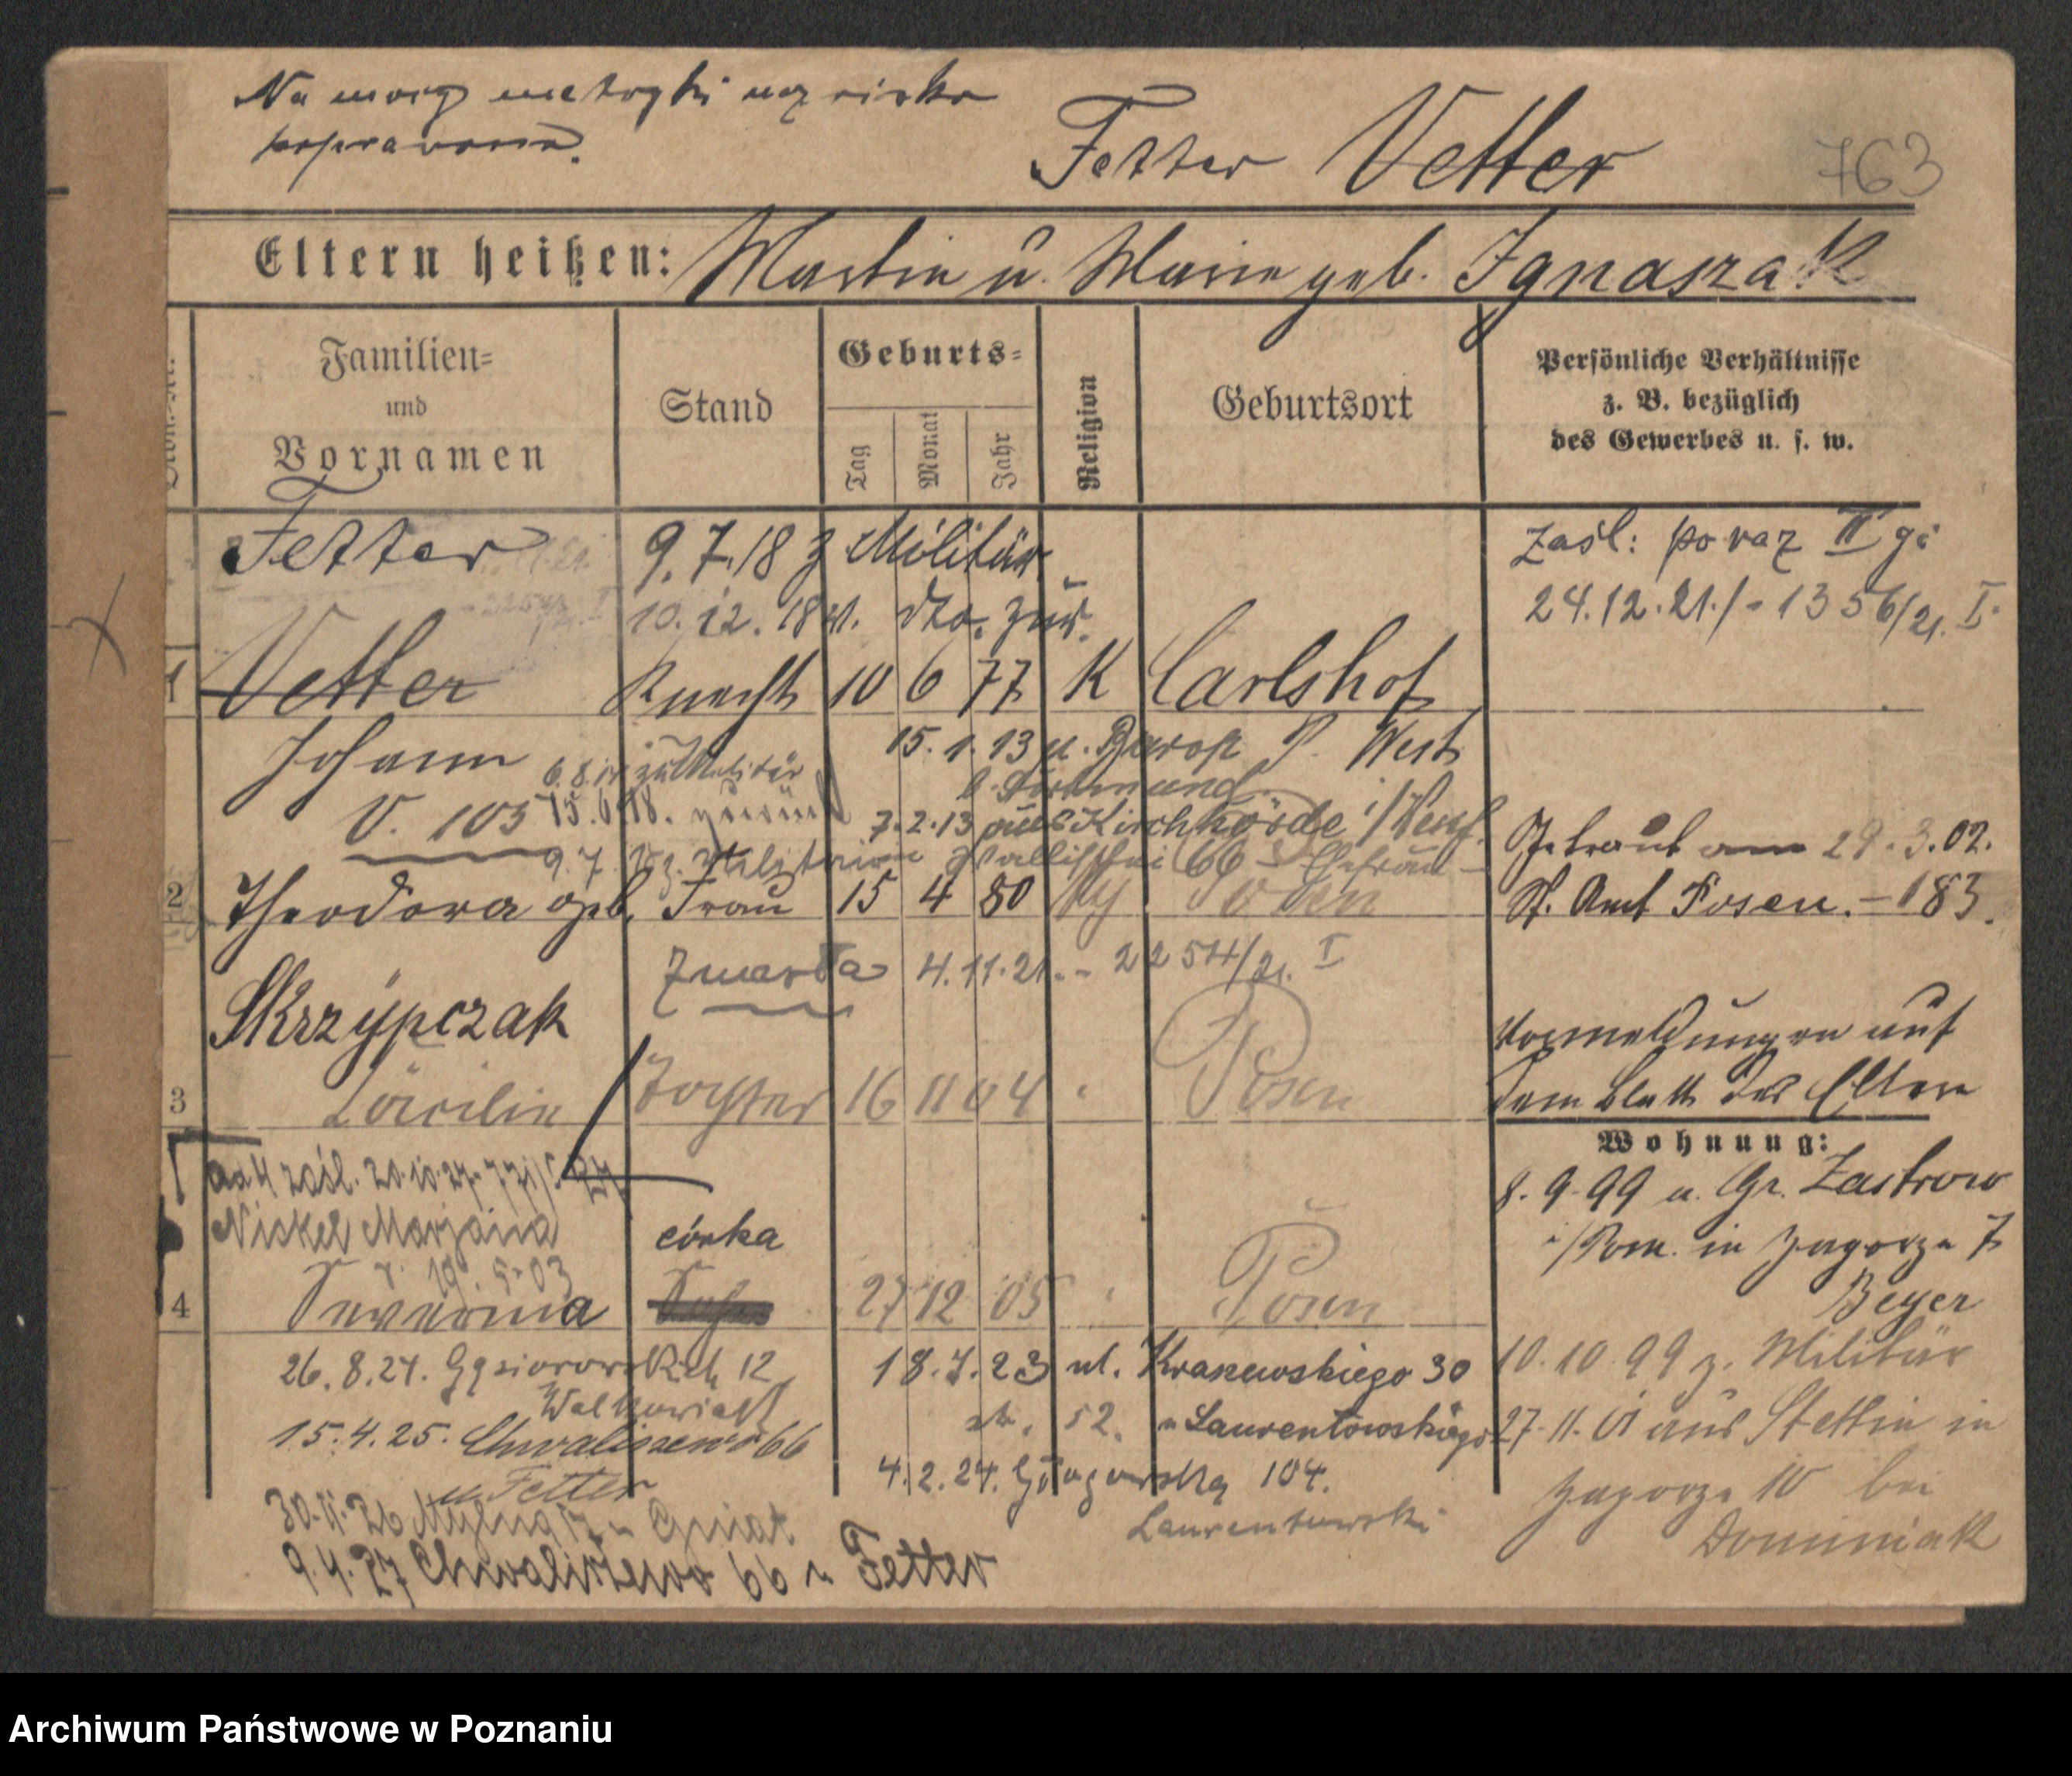 Na mocy metryki nazwisko
poprawiono.
Fetter Vetter 763
Eltern heißen: Martin u. Marie geb. Ignaszak
Familien=
und
Vornamen
Stand
Geburts=
Tag
Monat
Jahr
Religion
Geburtsort
Persönliche Verhältnisse
z. B. bezüglich
des Gewerbes u. s. w.
Fetter 9.7.18 z Militär
zaśl: po raz II gi
10.12.18 dto. zur.
24.12.21./-1356/21. I.
1 Vetter Knecht 10 6 77 K Carlshof
Johann
15.1.13 n. Barop P. West
6.8. zum Militär b. Dortmund
V. 103 15.6.18. zurück 7.2.13 aus Kirchhörde i/Westf.
9.7. z. Militär Wallischei 66 Ehefrau
Getraut am 29.3.02.
2 Theodora geb. Frau 15 4 80 Posen
St. Amt Posen. - 183.
zmarła 4.11.21. - 2254/21. I
Skrzypczak
Vormeldungen auf
dem Blatt der Eltern
3 Cäcilie Tochter 16 11 04 Posen
Wohnung:
zaśl. 20.10.27
8.9.99 n. Gr. Zastrow
Nickel Marjana
córka
i/Pom. in Zagorze 7
19.5.03
Beyer
4 Seweryna 27 12 05 Posen
26.8.24. Gąsiorowskich 12
18.7.23 ul. Kraszewskiego 30
10.10.99 z. Militär
Walkowiak
15.4.25. Chwaliszewo 66
52. u Laurentowskiego
27.11.01 aus Stettin in
u Fetter
4.2.24. Głogowska 104.
Zagorze 10 bei
30.11.26 Młyńska u Gniot
Laurentowski
Dominiak
9.4.27 Chwaliszewo 66 u Fetter
Archiwum Państwowe w Poznaniu